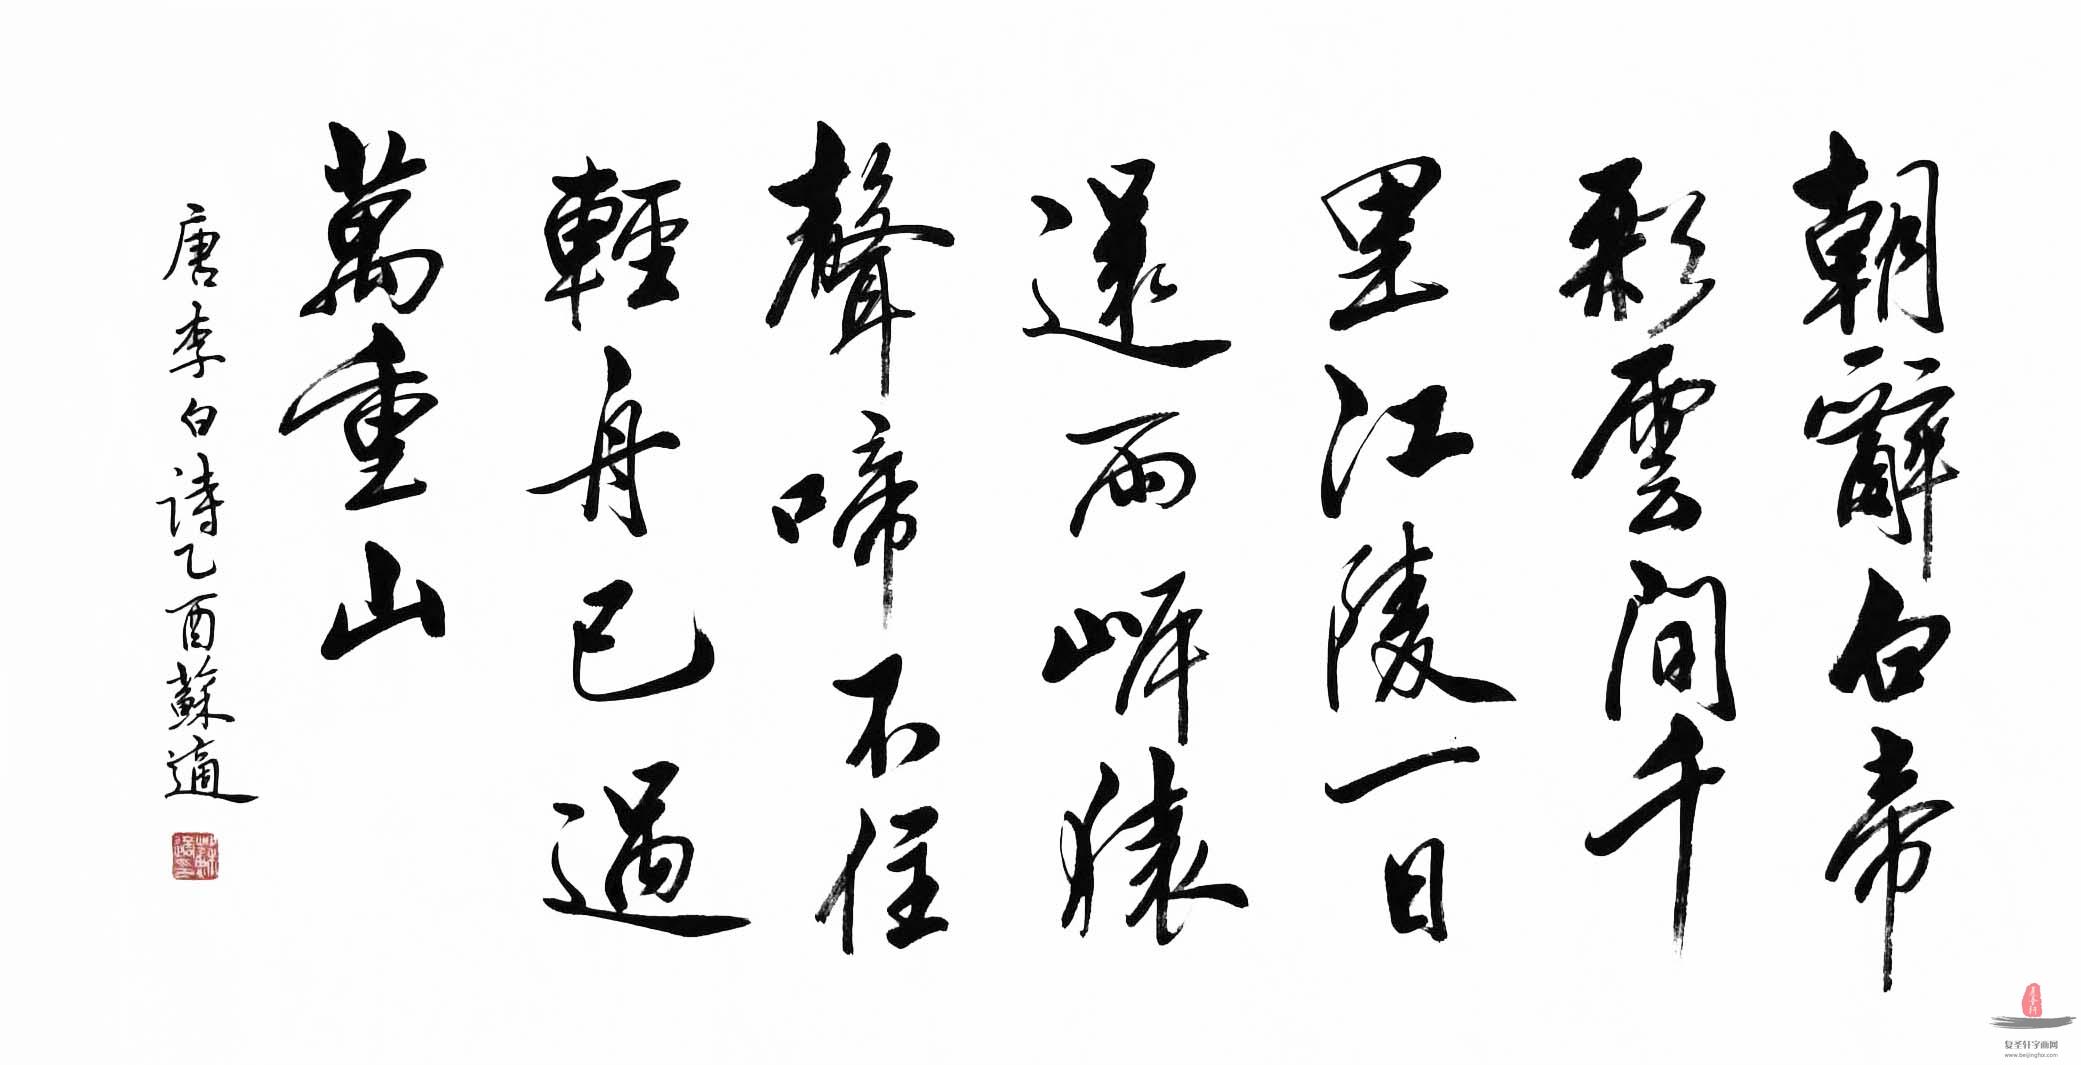 朝辭白帝
彩雲间千
里江陵一日
還兩岸猿
聲啼不住
輕舟已過
萬重山
唐李白詩乙酉蘇適
复圣轩字画网
www.beijingfsx.com